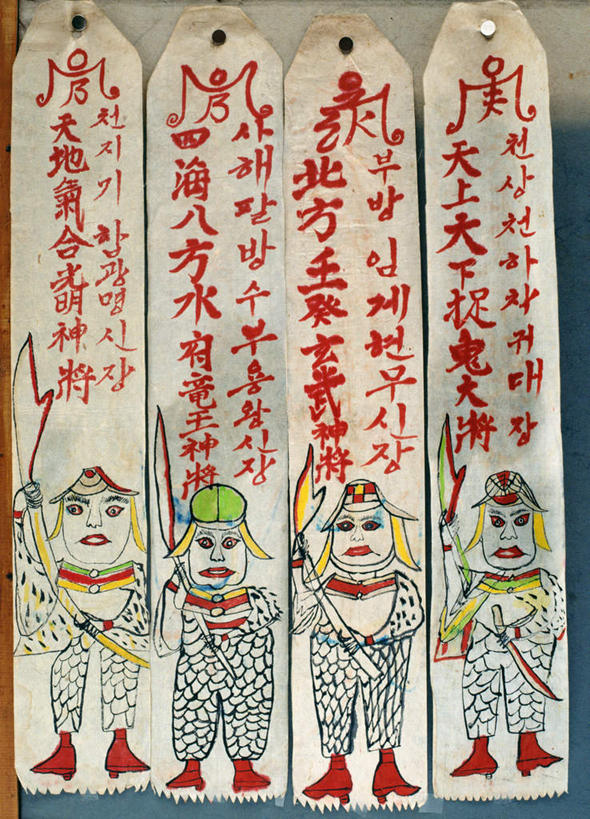 천상천하차귀대장
天上大下捉鬼大將
부방 임게현무신장
北方壬癸玄武神將
사해팔방수부용왕신장
四海八方水府竜王神將
천지기합광명신장
天地氣合光明神將